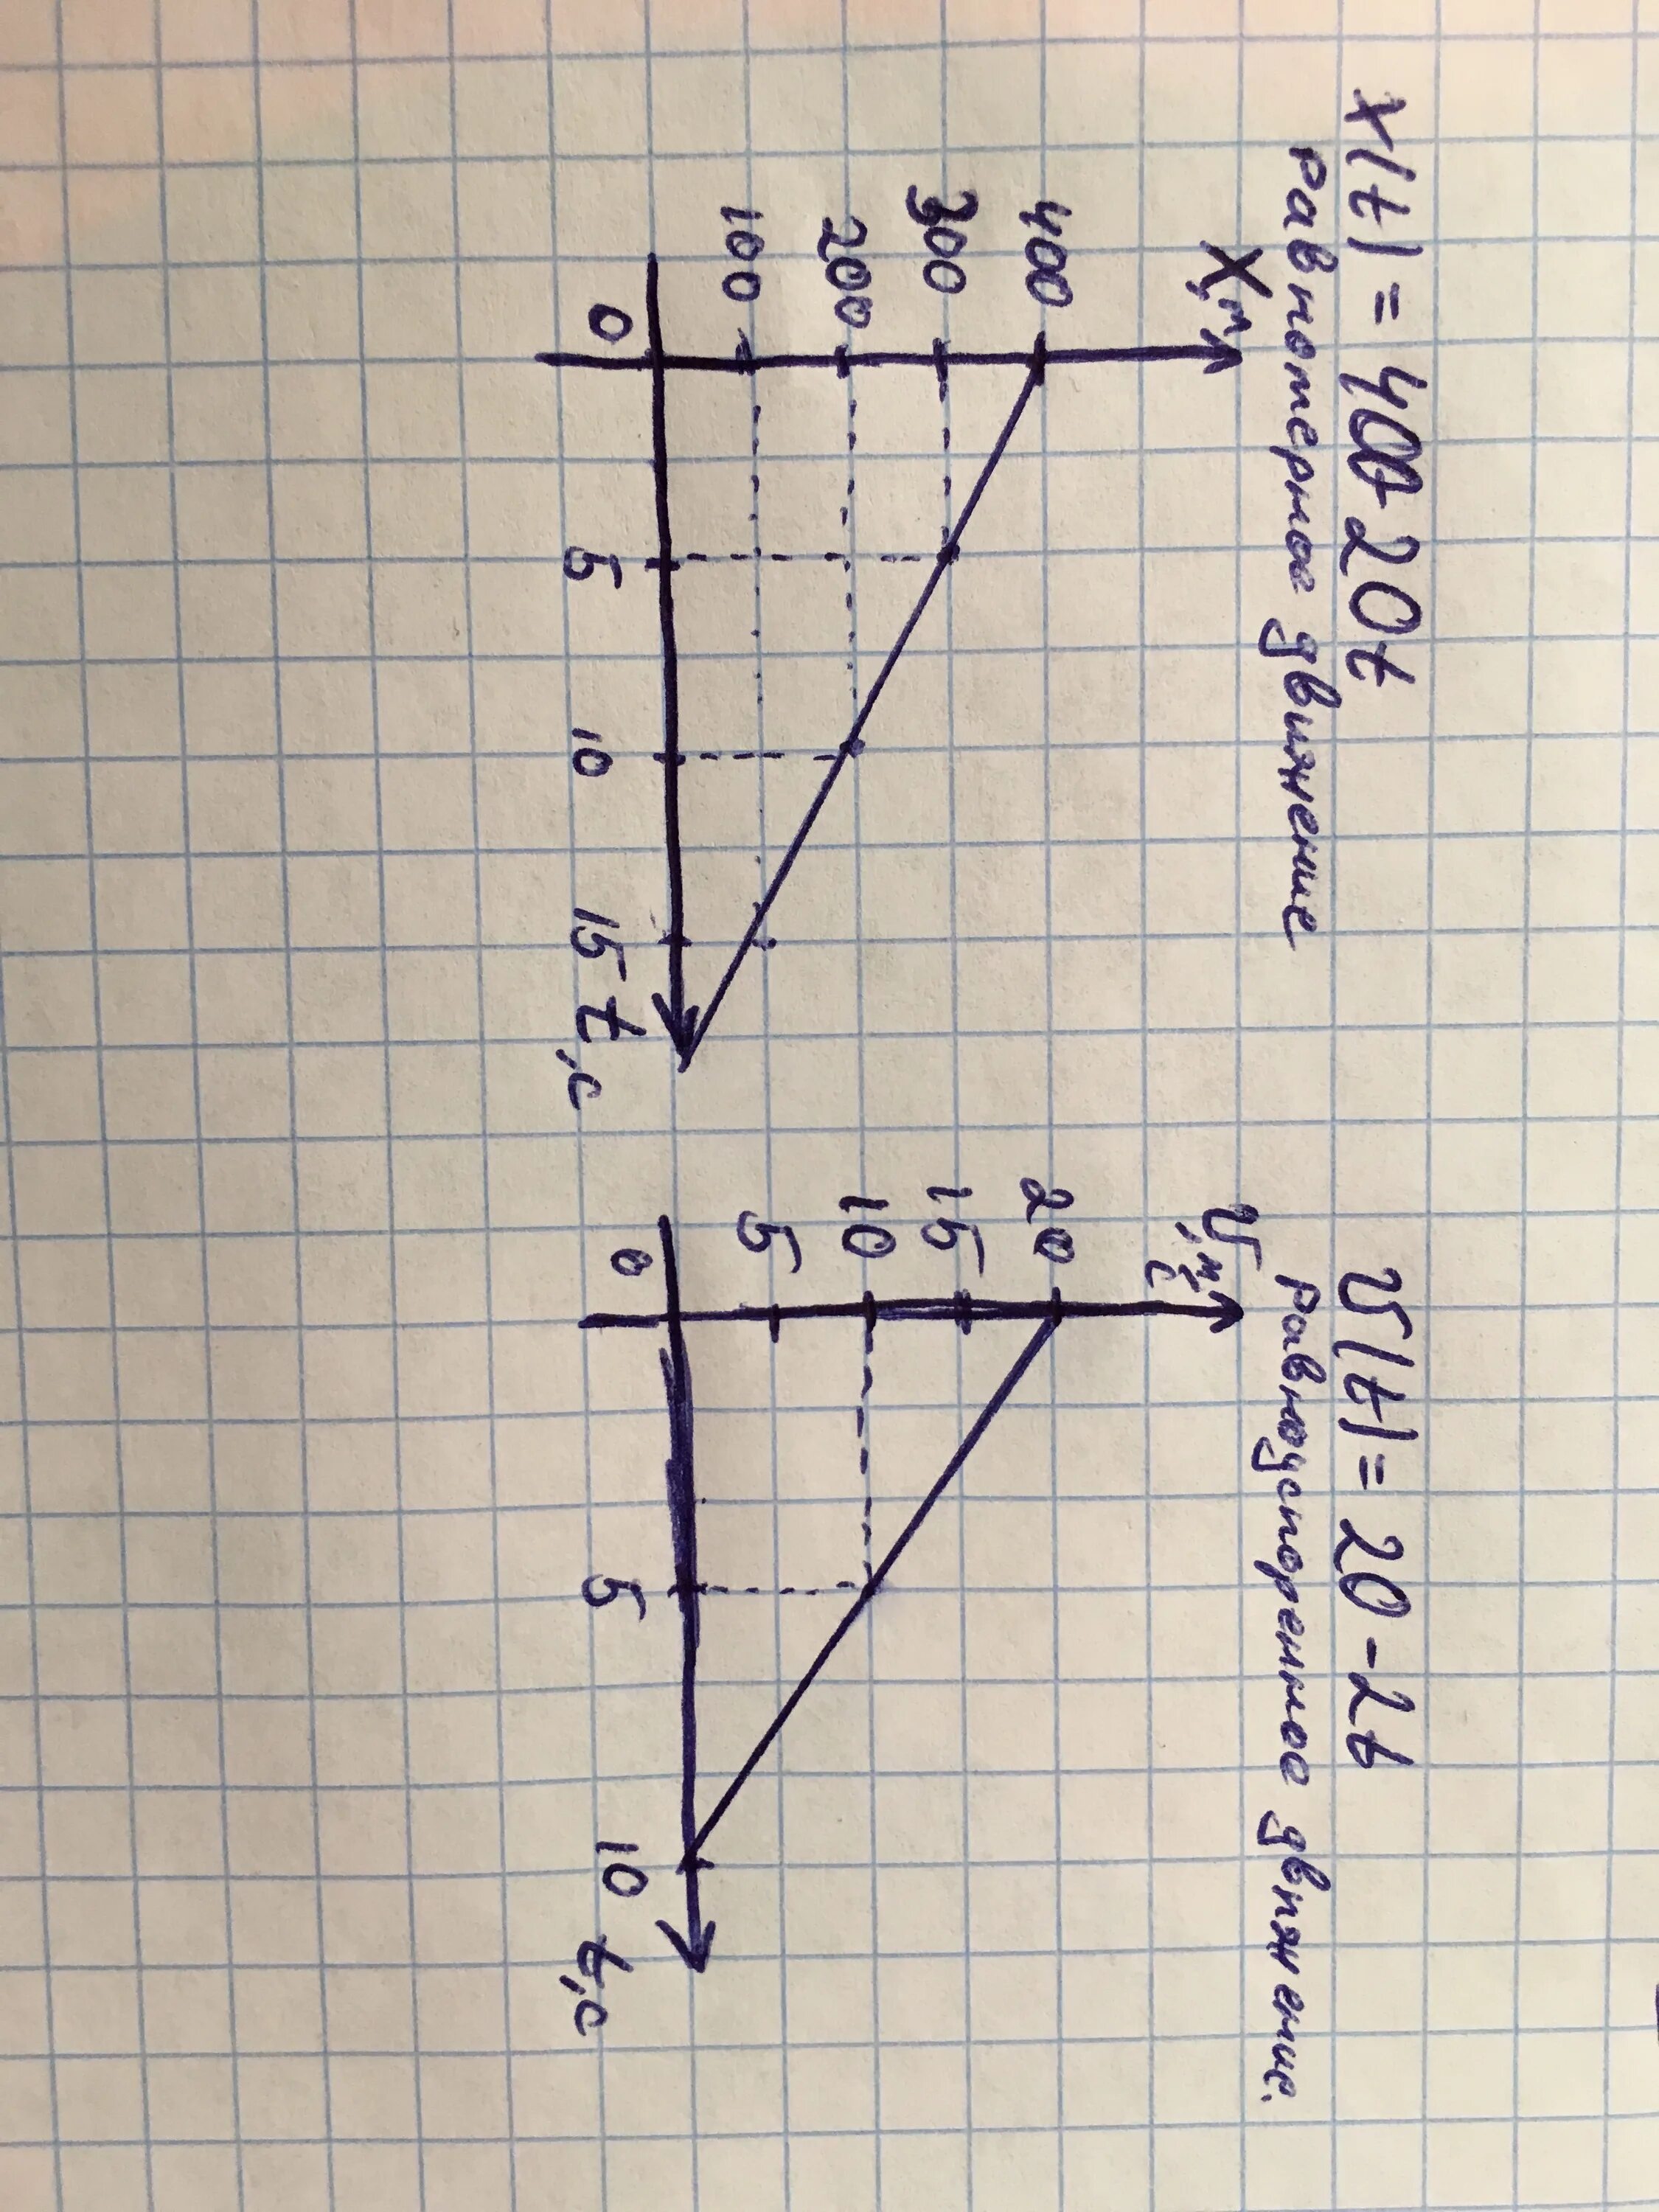 x(t) = 400-20t
равномерное движение
X,м
400
300
200
100
0
5
10
15 t,с
v(t) = 20-2t
равноускоренное движение.
v, м/с
20
15
10
5
0
5
10 t,с